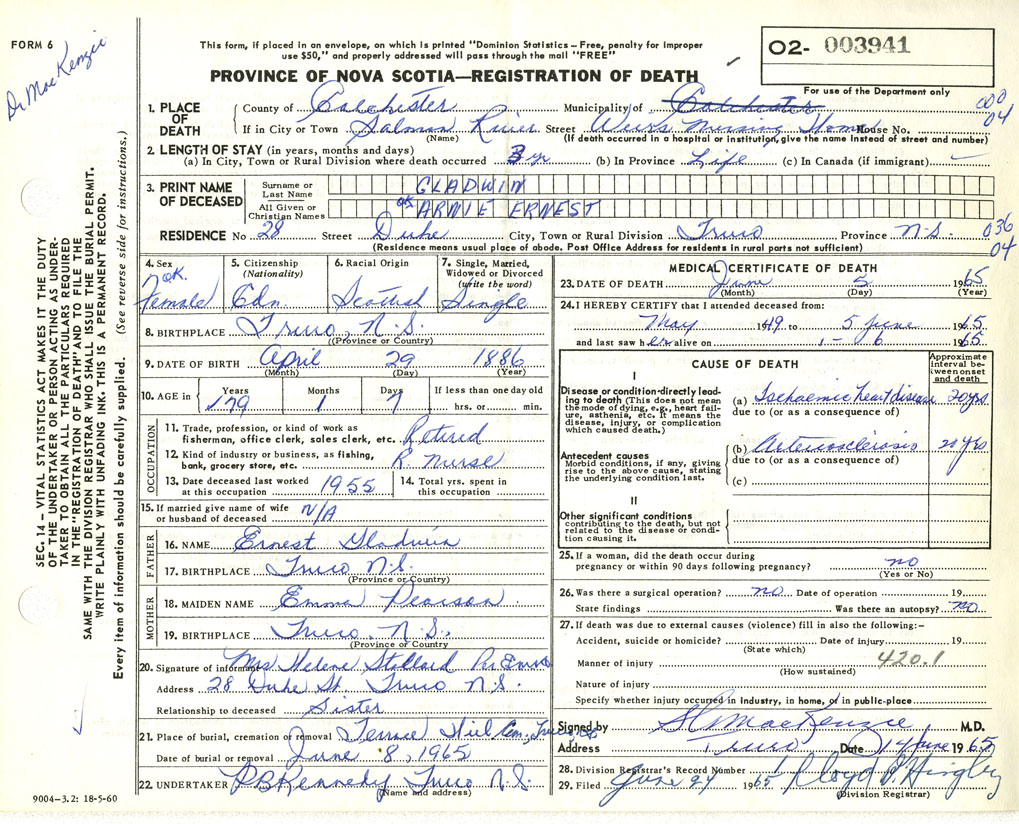 FORM 6
Dr MacKenzie
This form, if placed in an envelope, on which is printed "Dominion Statistics – Free, penalty for improper
use $50," and properly addressed will pass through the mail "FREE"
O2- 003941
For use of the Department only
PROVINCE OF NOVA SCOTIA—REGISTRATION OF DEATH
1. PLACE OF DEATH
County of Colchester Municipality of Colchester
000
04
If in City or Town Salmon River Street Weirs Nursing Home House No.
(Name) (If death occurred in a hospital or institution, give the name instead of street and number)
2. LENGTH OF STAY (in years, months and days)
(a) In City, Town or Rural Division where death occurred 3 yr (b) In Province Life (c) In Canada (if immigrant)
3. PRINT NAME OF DECEASED
Surname or Last Name GLADWIN
All Given or Christian Names ok ARNIE ERNEST
RESIDENCE No 28 Street Duke City, Town or Rural Division Truro Province N.S.
036
04
(Residence means usual place of abode. Post Office Address for residents in rural parts not sufficient)
4. Sex OK. Female
5. Citizenship (Nationality) Cdn.
6. Racial Origin Scottish
7. Single, Married, Widowed or Divorced (write the word) Single
8. BIRTHPLACE Truro, N.S.
(Province or Country)
9. DATE OF BIRTH April 29 1886
(Month) (Day) (Year)
10. AGE in Years 79 Months 1 Days 7 If less than one day old hrs. or min.
OCCUPATION
11. Trade, profession, or kind of work as
fisherman, office clerk, sales clerk, etc. Retired
12. Kind of industry or business, as fishing,
bank, grocery store, etc. R. Nurse
13. Date deceased last worked at this occupation 1955
14. Total yrs. spent in this occupation
15. If married give name of wife or husband of deceased N/A
FATHER
16. NAME Ernest Gladwin
17. BIRTHPLACE Truro N.S.
(Province or Country)
MOTHER
18. MAIDEN NAME Emma Pearson
19. BIRTHPLACE Truro, N.S.
(Province or Country)
20. Signature of informant Mrs Helene Stallard
Address 28 Duke St. Truro N.S.
Relationship to deceased Sister
21. Place of burial, cremation or removal Terrace Hill Cem, Truro
Date of burial or removal June 8, 1965
22. UNDERTAKER P.B. Kennedy Truro N.S.
(Name and address)
MEDICAL CERTIFICATE OF DEATH
23. DATE OF DEATH June 5 1965
(Month) (Day) (Year)
24. I HEREBY CERTIFY that I attended deceased from:
May 1949 to 5 June 1965
and last saw her alive on 1-6 1965
CAUSE OF DEATH
Approximate interval between onset and death
I
Disease or condition directly leading to death (This does not mean
the mode of dying, e.g., heart failure, asthenia, etc. It means the
disease, injury, or complication
which caused death.)
(a) Ischaemic heart disease 20 yrs
due to (or as a consequence of)
Antecedent causes
Morbid conditions, if any, giving
rise to the above cause, stating
the underlying condition last.
(b) Arteriosclerosis 20 yrs
due to (or as a consequence of)
(c)
II
Other significant conditions
contributing to the death, but not
related to the disease or condition causing it.
25. If a woman, did the death occur during
pregnancy or within 90 days following pregnancy? no
(Yes or No)
26. Was there a surgical operation? no Date of operation 19
State findings Was there an autopsy? no
27. If death was due to external causes (violence) fill in also the following:-
Accident, suicide or homicide? Date of injury 19
(State which)
Manner of injury 420.1
(How sustained)
Nature of injury
Specify whether injury occurred in industry, in home, or in public-place
Signed by MacKenzie M.D.
Address Truro Date 14 June 1965
28. Division Registrar's Record Number
29. Filed June 24 1965 Lloyd
(Division Registrar)
SEC. 14 – VITAL STATISTICS ACT MAKES IT THE DUTY
OF THE UNDERTAKER OR PERSON ACTING AS UNDERTAKER TO OBTAIN ALL THE PARTICULARS REQUIRED
IN THE "REGISTRATION OF DEATH" AND TO FILE THE
SAME WITH THE DIVISION REGISTRAR WHO SHALL ISSUE THE BURIAL PERMIT.
WRITE PLAINLY WITH UNFADING INK. THIS IS A PERMANENT RECORD.
Every item of information should be carefully supplied. (See reverse side for instructions.)
9004-3.2: 18-5-60